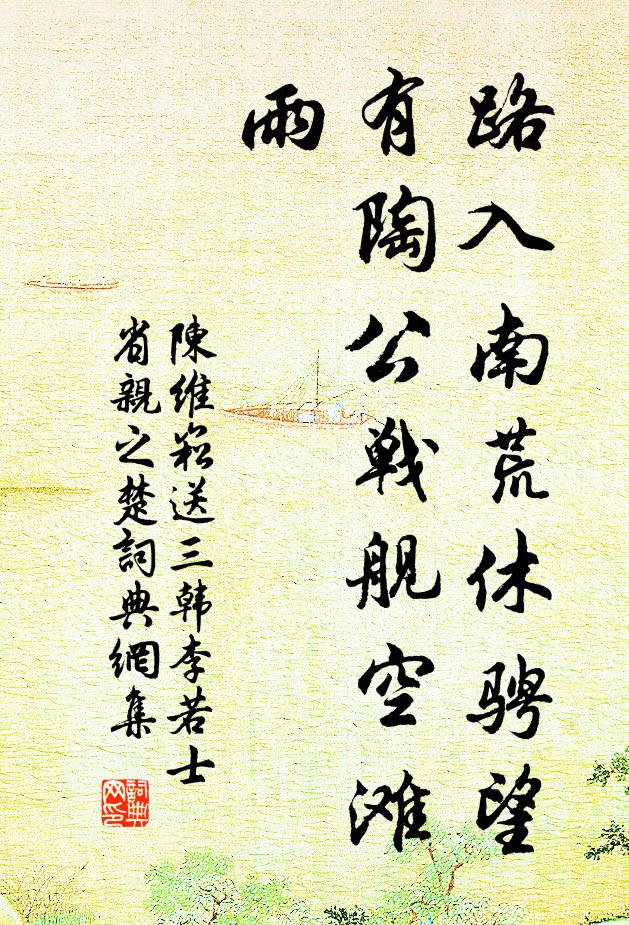 路入南荒休骋望
有陶公戦舰空滩
雨
陳維崧送三韩李若士
省親之楚詞典網集
詞典
网印